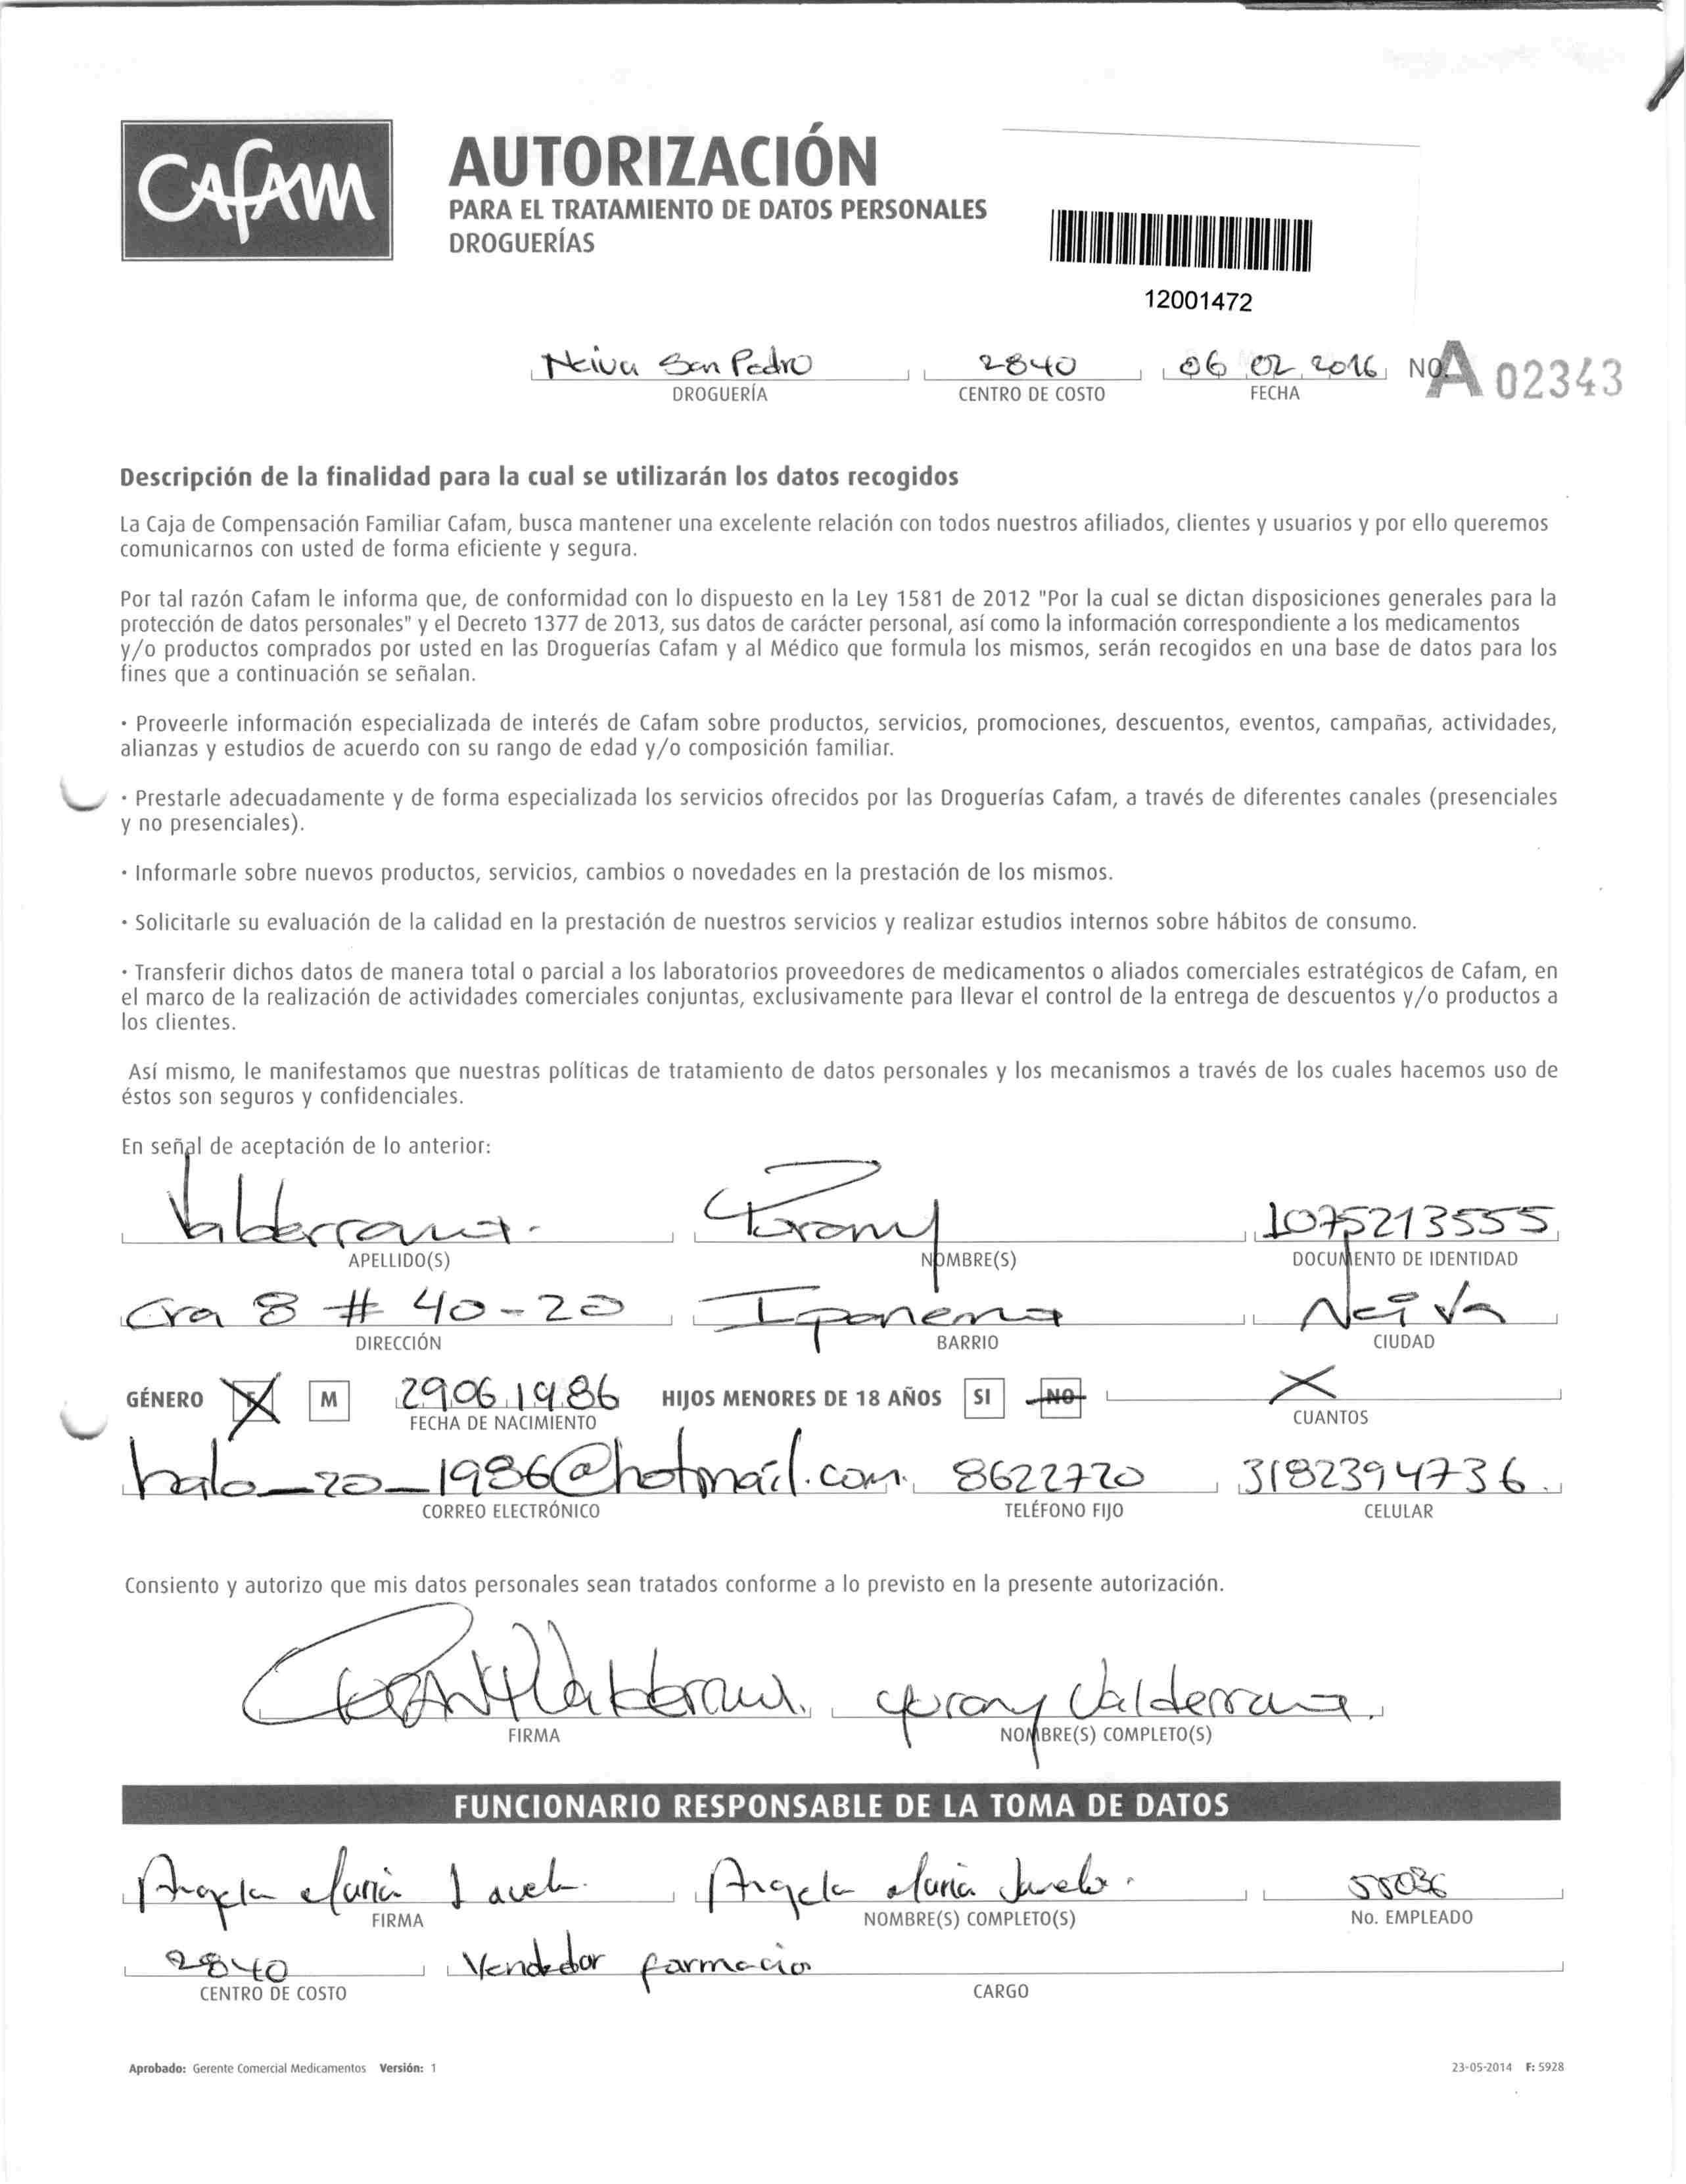 Cafam
AUTORIZACIÓN
PARA EL TRATAMIENTO DE DATOS PERSONALES
DROGUERÍAS
12001472
Neiva San Pedro 2840 06 02 2016 NO. A 02343
DROGUERÍA CENTRO DE COSTO FECHA
Descripción de la finalidad para la cual se utilizarán los datos recogidos
La Caja de Compensación Familiar Cafam, busca mantener una excelente relación con todos nuestros afiliados, clientes y usuarios y por ello queremos
comunicarnos con usted de forma eficiente y segura.
Por tal razón Cafam le informa que, de conformidad con lo dispuesto en la Ley 1581 de 2012 "Por la cual se dictan disposiciones generales para la
protección de datos personales" y el Decreto 1377 de 2013, sus datos de carácter personal, así como la información correspondiente a los medicamentos
y/o productos comprados por usted en las Droguerías Cafam y al Médico que formula los mismos, serán recogidos en una base de datos para los
fines que a continuación se señalan.
· Proveerle información especializada de interés de Cafam sobre productos, servicios, promociones, descuentos, eventos, campañas, actividades,
alianzas y estudios de acuerdo con su rango de edad y/o composición familiar.
· Prestarle adecuadamente y de forma especializada los servicios ofrecidos por las Droguerías Cafam, a través de diferentes canales (presenciales
y no presenciales).
· Informarle sobre nuevos productos, servicios, cambios o novedades en la prestación de los mismos.
· Solicitarle su evaluación de la calidad en la prestación de nuestros servicios y realizar estudios internos sobre hábitos de consumo.
· Transferir dichos datos de manera total o parcial a los laboratorios proveedores de medicamentos o aliados comerciales estratégicos de Cafam, en
el marco de la realización de actividades comerciales conjuntas, exclusivamente para llevar el control de la entrega de descuentos y/o productos a
los clientes.
Así mismo, le manifestamos que nuestras políticas de tratamiento de datos personales y los mecanismos a través de los cuales hacemos uso de
éstos son seguros y confidenciales.
En señal de aceptación de lo anterior:
Valderrama. Yurany 1075213555
APELLIDO(S) NOMBRE(S) DOCUMENTO DE IDENTIDAD
Cra 8 # 40-20 Ipanema Neiva
DIRECCIÓN BARRIO CIUDAD
GÉNERO F M 29 06 1986 HIJOS MENORES DE 18 AÑOS SI NO X
FECHA DE NACIMIENTO CUANTOS
halo_20_1986@hotmail.com. 8622720 3182394736.
CORREO ELECTRÓNICO TELÉFONO FIJO CELULAR
Consiento y autorizo que mis datos personales sean tratados conforme a lo previsto en la presente autorización.
Valderrama. Yurany Valderrama.
FIRMA NOMBRE(S) COMPLETO(S)
FUNCIONARIO RESPONSABLE DE LA TOMA DE DATOS
Angela Maria Angela Maria 55036
FIRMA NOMBRE(S) COMPLETO(S) No. EMPLEADO
2840 Vendedor farmacia
CENTRO DE COSTO CARGO
Aprobado: Gerente Comercial Medicamentos Versión: 1 23-05-2014 F: 5928